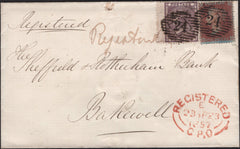 Registered
The
Sheffield & Rotherham Bank
Bakewell
21
21
REGISTERED
E
23 AP 23
1857
G.P.O